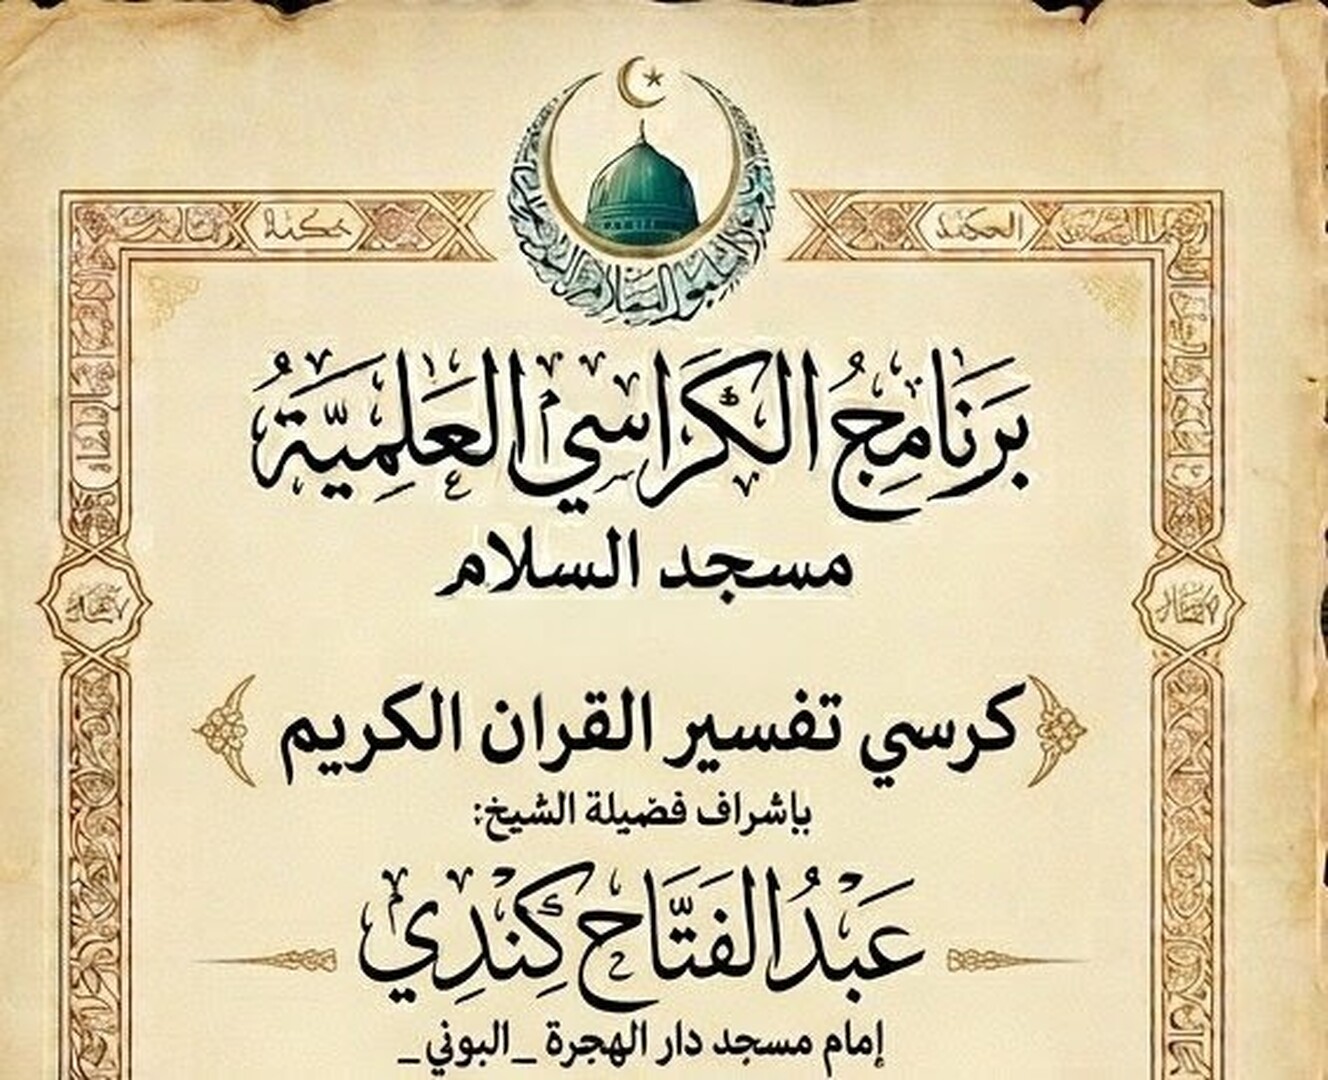 بَرنَامِجُ الكَرَاسيِ العَلِميَّةُ
مسجد السلام
كرسي تفسير القران الكريم
بإشراف فضيلة الشيخ:
عَبْدُ الفَتَّاح كِنْدِي
إمام مسجد دار الهجرة _البوني_